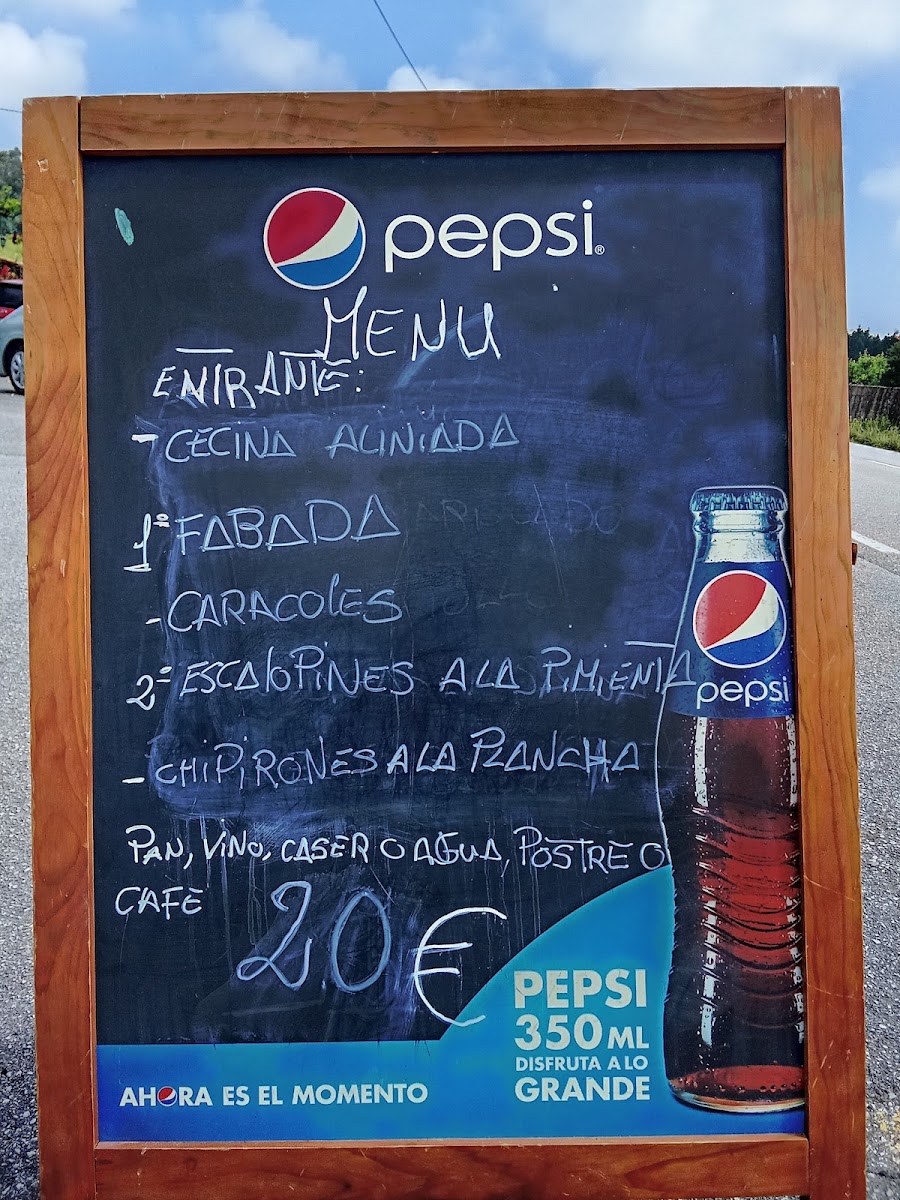 pepsi®
MENU
ENTRANTE:
- CECINA ALINIADA
1º FABADA
- CARACOLES
2º ESCALOPINES A LA PIMIENTA
- CHIPIRONES A LA PLANCHA
PAN, VINO, CASER O AGUA, POSTRE O
CAFE
20 €
pepsi
PEPSI
350 ML
DISFRUTA A LO
GRANDE
AHORA ES EL MOMENTO